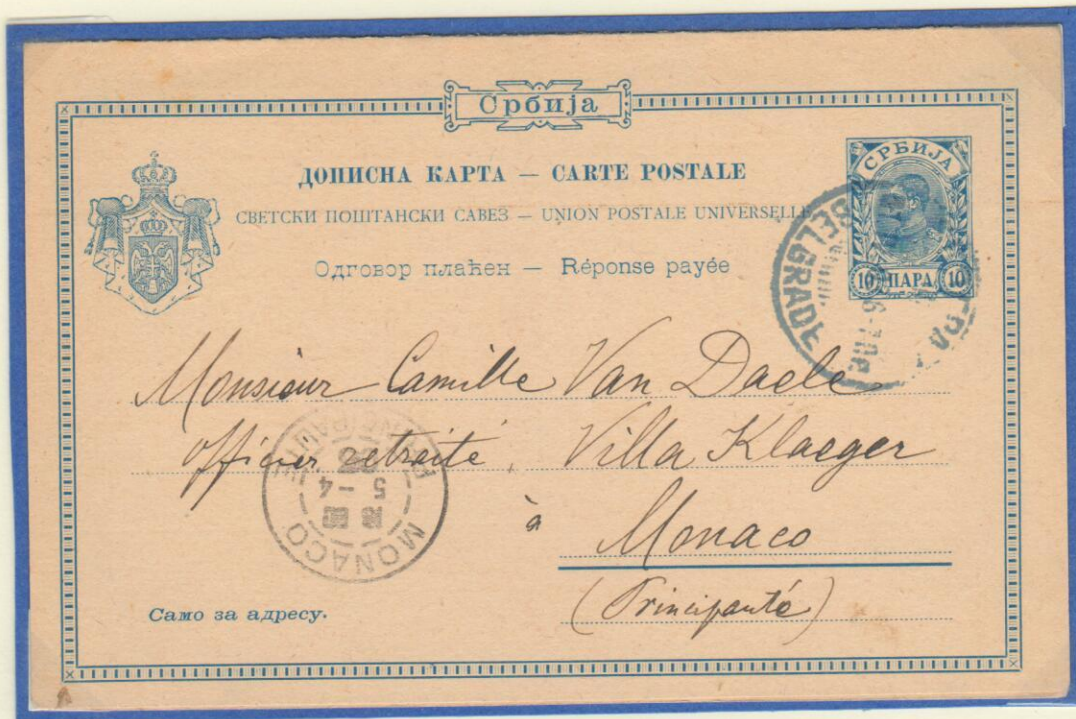 Србија
ДОПИСНА КАРТА — CARTE POSTALE
СВЕТСКИ ПОШТАНСКИ САВЕЗ — UNION POSTALE UNIVERSELLE
Одговор плаћен — Réponse payée
СРБИЈА
10 ПАРА 10
BELGRADE
Monsieur Camille Van Daele
officier retraité, Villa Klaeger
à Monaco
(Principauté)
MONACO
Само за адресу.